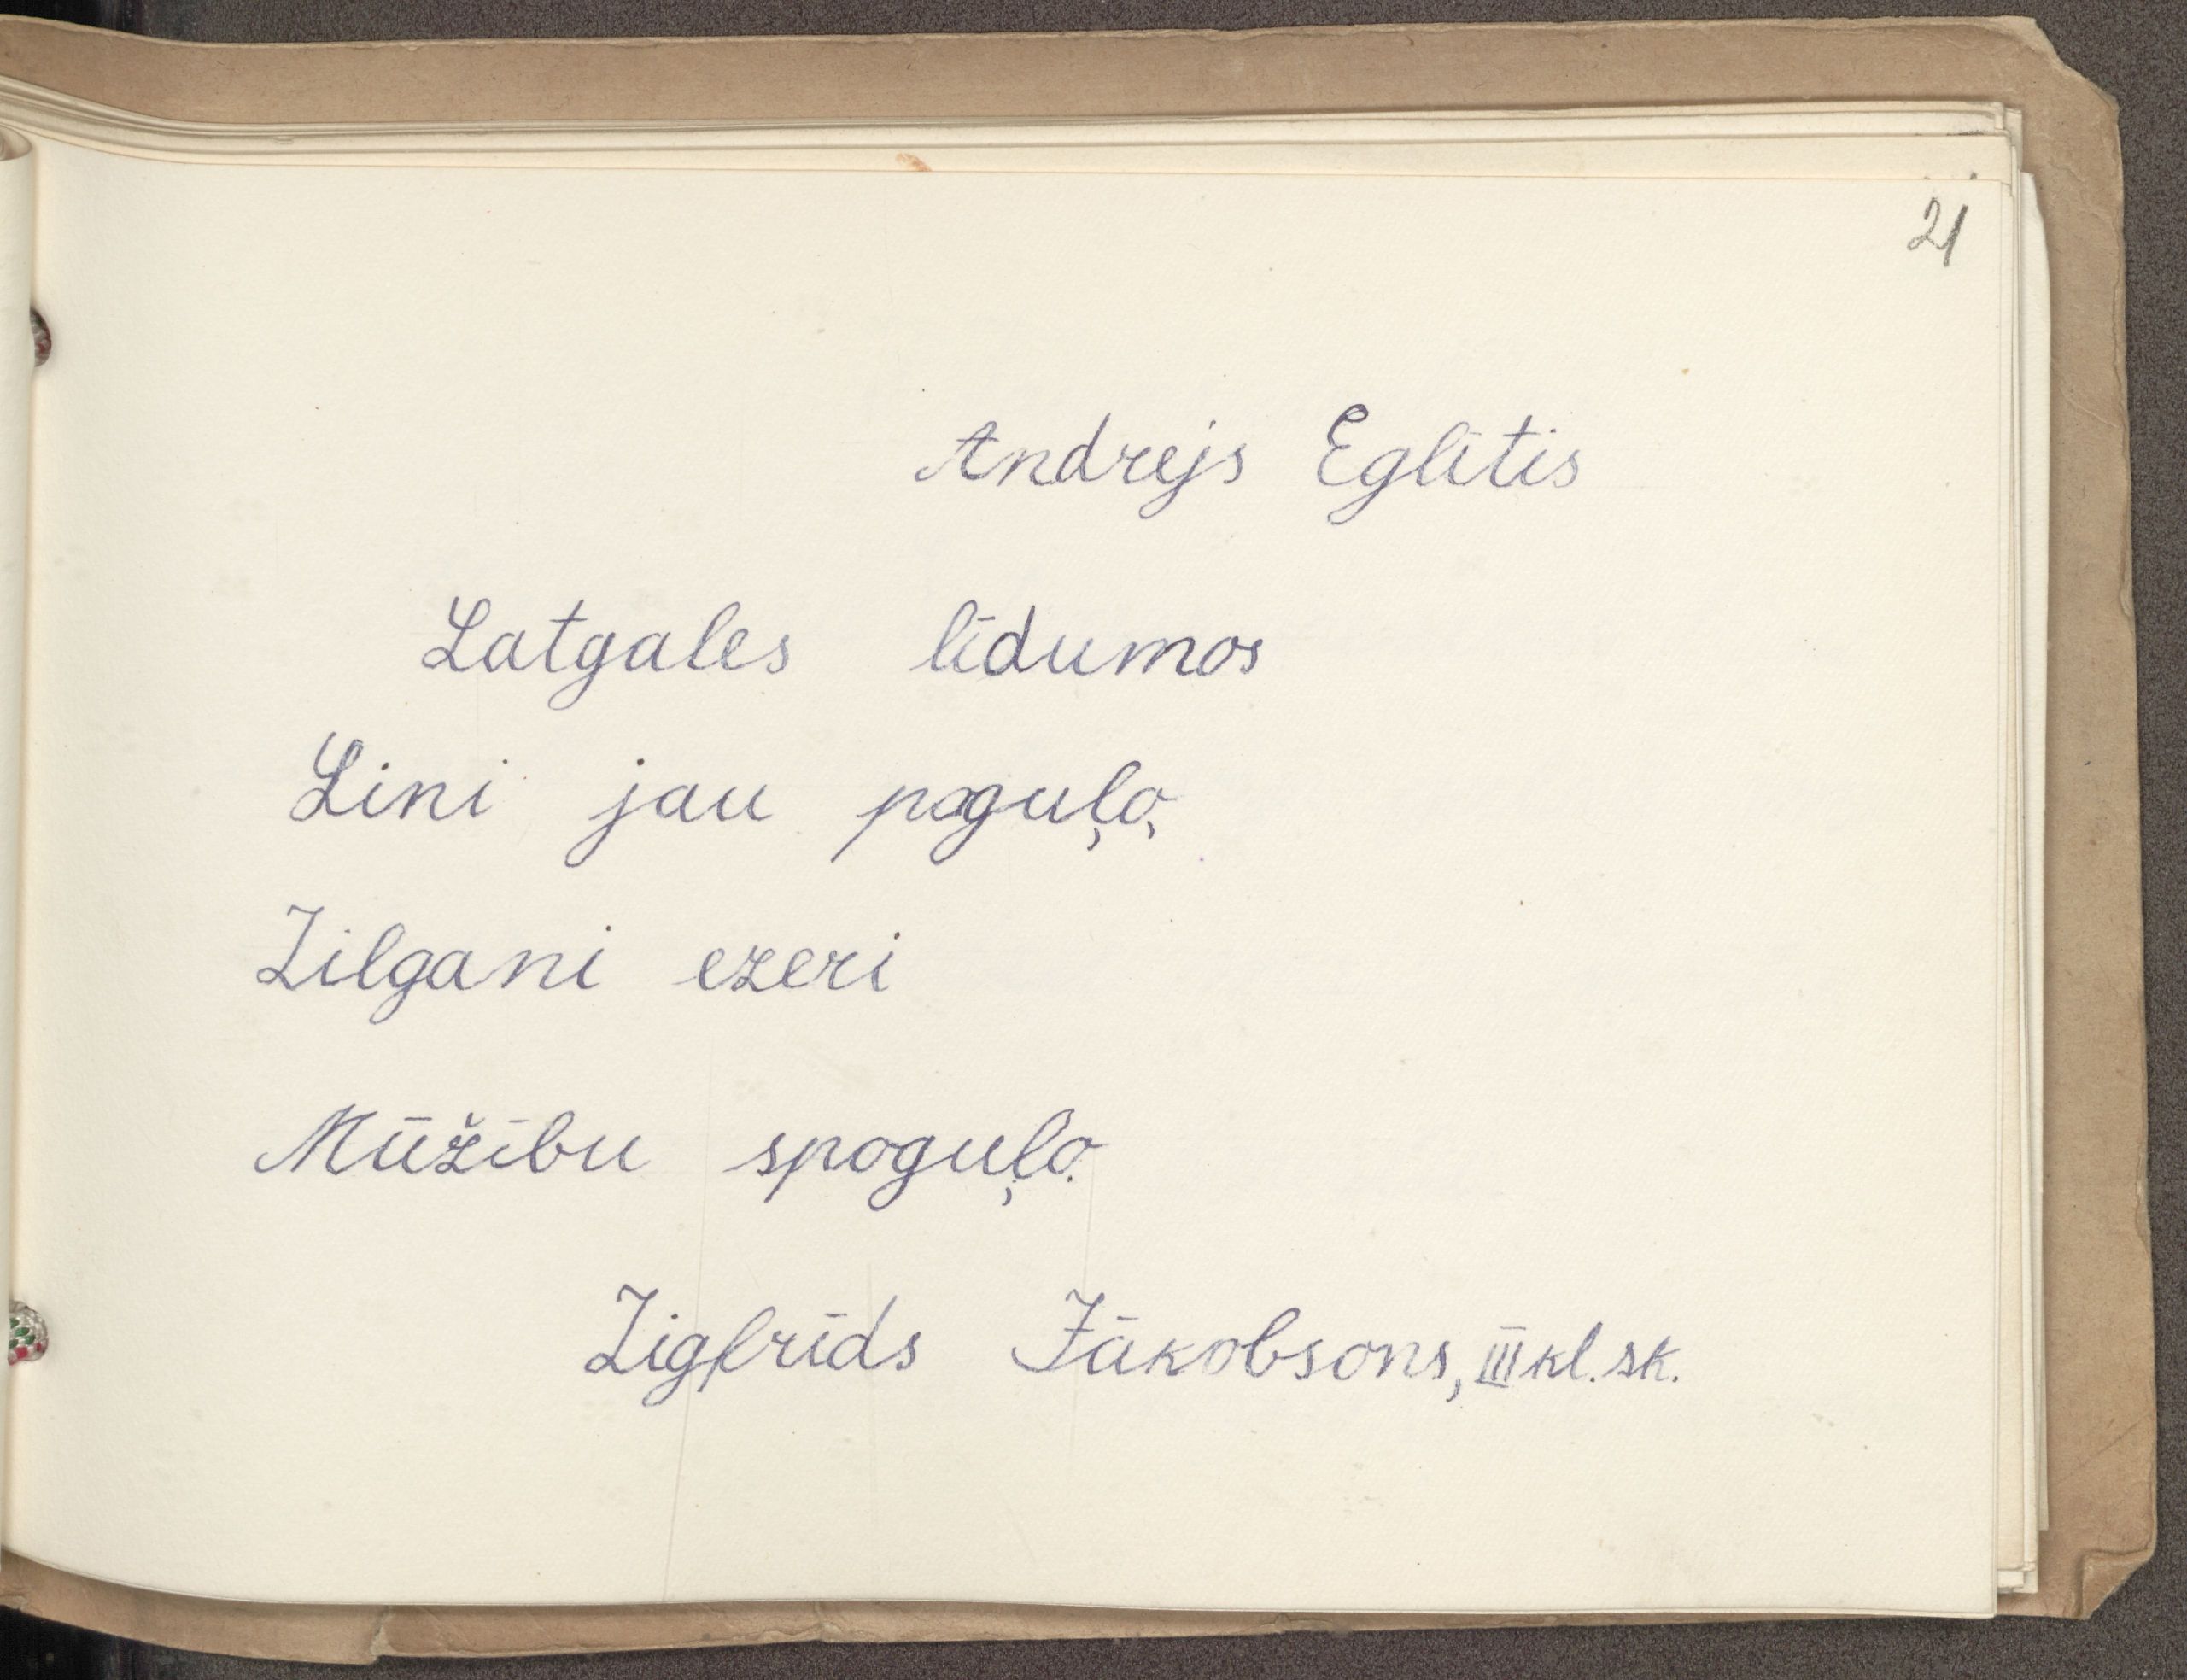 21
Andrejs Eglītis
Latgales līdumos
Lini jau poguļo,
Zilgani ezeri
Mūžību spoguļo.
Zigfrīds Jākobsons, III kl. sk.